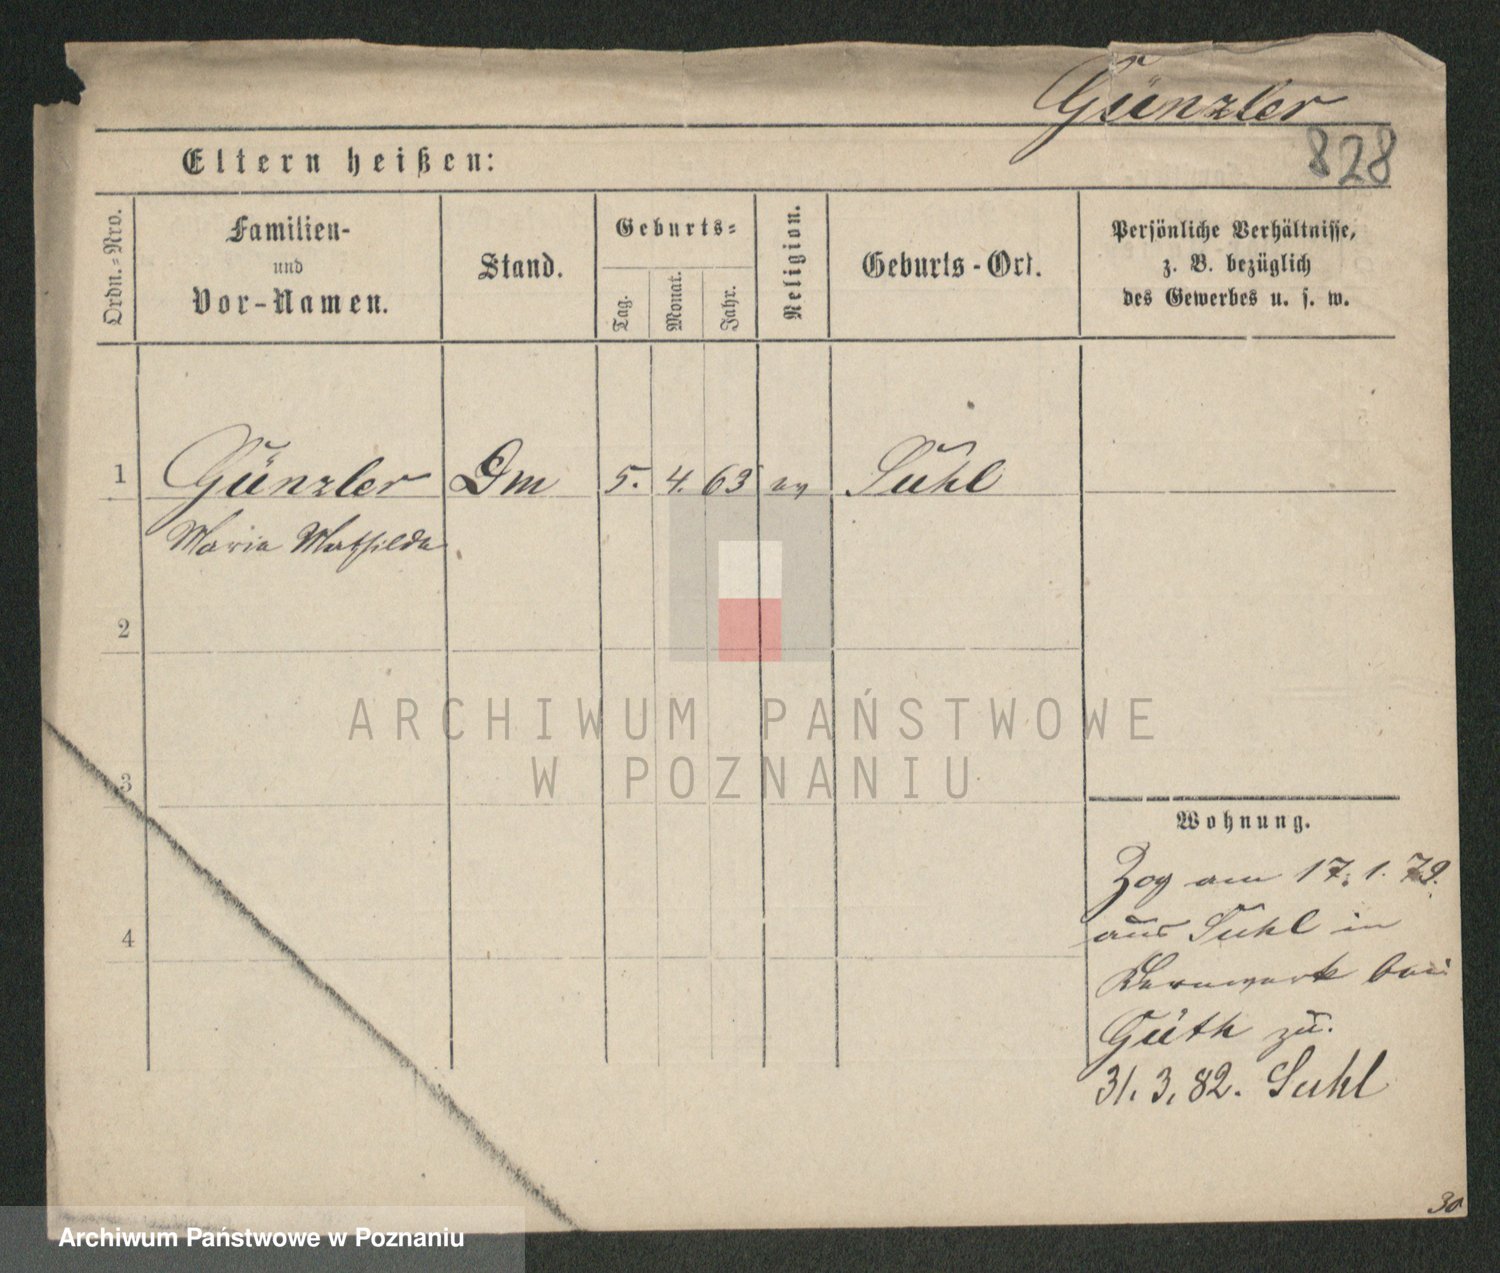 Günzler
828
Eltern heißen:
Ordn.-Nro.
Familien-
und
Vor-Namen.
Stand.
Geburts-
Tag.
Monat.
Jahr.
Religion.
Geburts-Ort.
Persönliche Verhältnisse,
z. B. bezüglich
des Gewerbes u. s. w.
1 Günzler Dm 5. 4. 63 ev Suhl
Maria Mathilde
2
3
4
ARCHIWUM PAŃSTWOWE
W POZNANIU
Wohnung.
Zog am 17.1.79.
aus Suhl in
Bernwerk bei
Güth zu.
31.3.82. Suhl
30
Archiwum Państwowe w Poznaniu